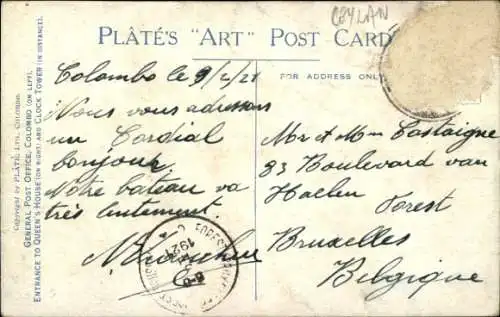 CEYLAN
PLÂTÉ'S "ART" POST CARD
FOR ADDRESS ONLY
Copyright by PLÂTÉ, Ltd., Colombo.
GENERAL POST OFFICE, COLOMBO (ON LEFT),
ENTRANCE TO QUEEN'S HOUSE (ON RIGHT) AND CLOCK TOWER (IN DISTANCE).
Colombo le 9/2/21
Nous vous adressons
un Cordial
bonjour
Notre bateau va
très lentement.
Mr et Mme Castaigne
83 Boulevard van
Haelen Forest
Bruxelles
Belgique